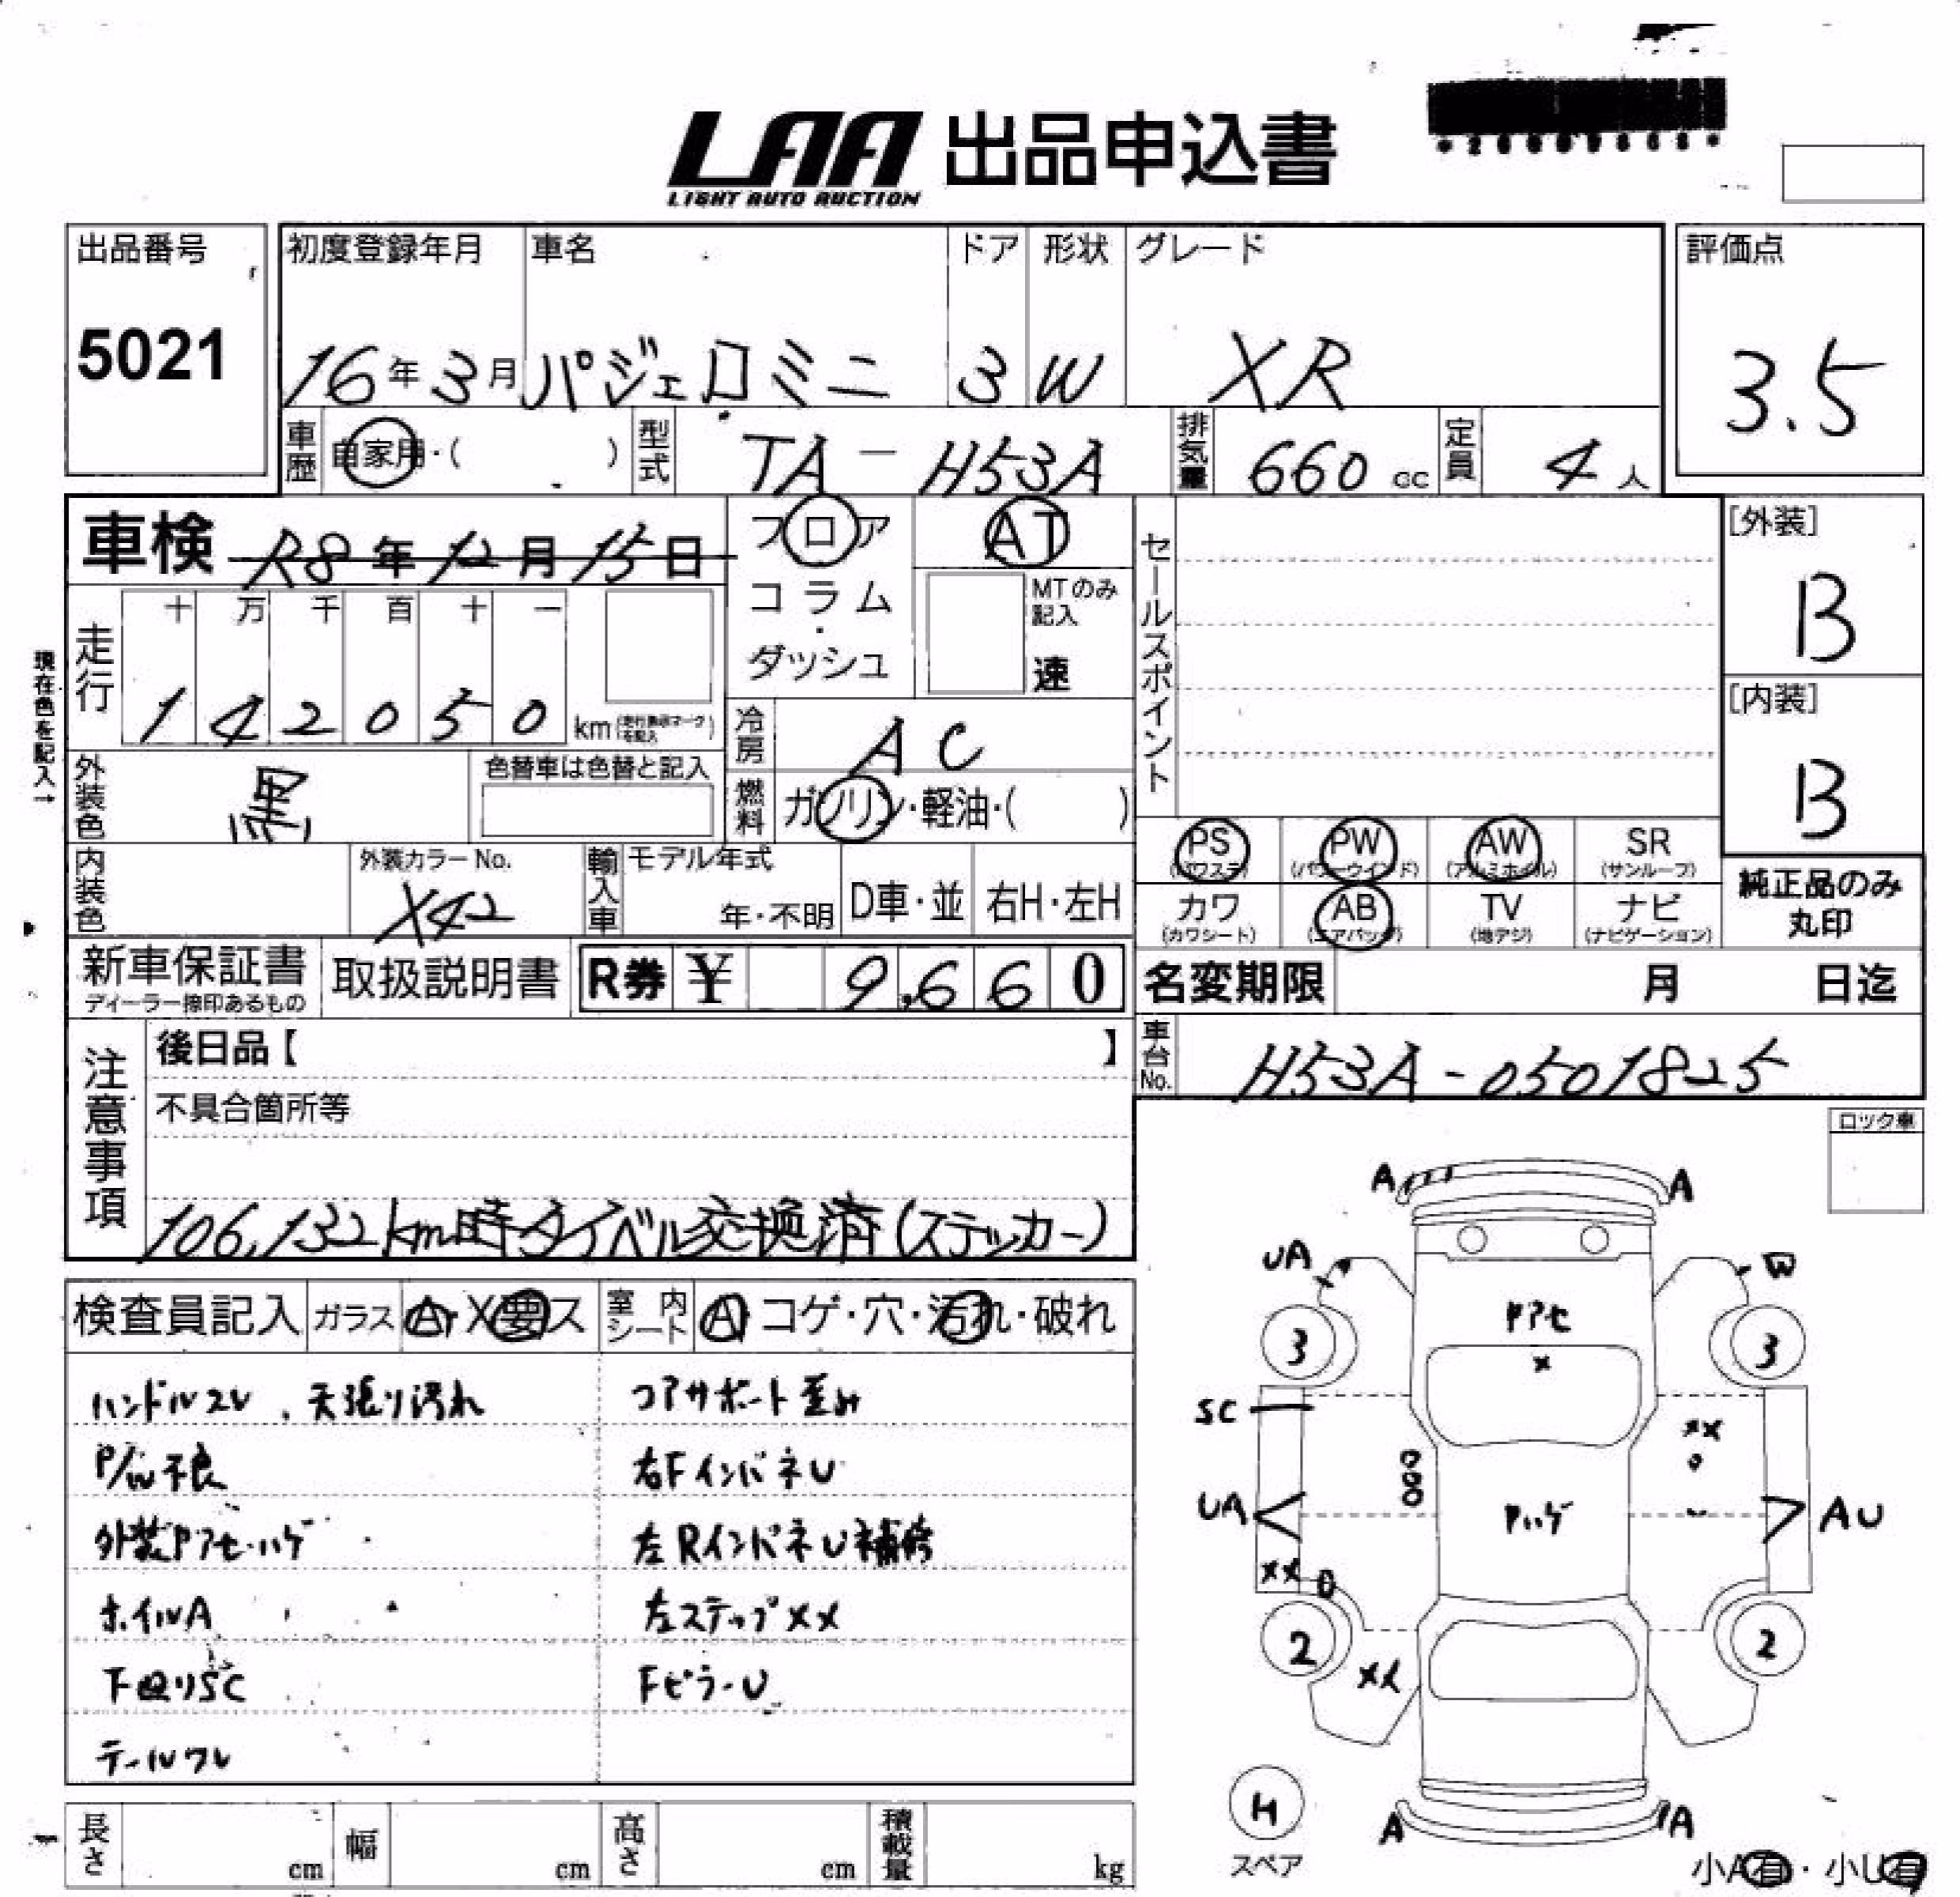 LAA 出品申込書
LIGHT AUTO AUCTION
出品番号
5021
初度登録年月
16年3月
車名
パジェロミニ
ドア
3
形状
W
グレード
XR
評価点
3.5
車歴
自家用・( )
型式
TA-H53A
排気量
660 cc
定員
4人
車検 R8年12月15日
フロア
コラム
・
ダッシュ
AT
MTのみ記入
速
セールスポイント
[外装]
B
[内装]
B
現在色を記入→
走行
十 万 千 百 十 一
1 4 2 0 5 0 km
冷房
AC
燃料
ガソリン・軽油・( )
外装色
黒
色替車は色替と記入
内装色
外装カラーNo.
X42
輸入車
モデル年式
年・不明
D車・並
右H・左H
PS
(パワステ)
PW
(パワーウインド)
AW
(アルミホイル)
SR
(サンルーフ)
カワ
(カワシート)
AB
(エアバッグ)
TV
(地デジ)
ナビ
(ナビゲーション)
純正品のみ
丸印
新車保証書
ディーラー捺印あるもの
取扱説明書
R券 ¥ 9,660
名変期限 月 日迄
車台No.
H53A-0501825
注意事項
後日品【 】
不具合箇所等
106,132km時タイベル交換済(ステッカー)
ロック車
検査員記入
ガラス A・X要ス
室内シート
A・コゲ・穴・汚れ・破れ
ハンドルスレ、天張り汚れ
P/W不良
外装Pアセ・ハゲ
ホイルA
下廻りSC
テールワレ
コアサポート歪み
右FインパネU
左RインパネU補修
左ステップXX
FピラーU
A
A
UA
W
Pアセ
X
3
3
SC
XX
UA
Pハゲ
AU
XX
2
2
XX
H
スペア
A
A
小A有・小U有
長さ cm
幅 cm
高さ cm
積載量 kg